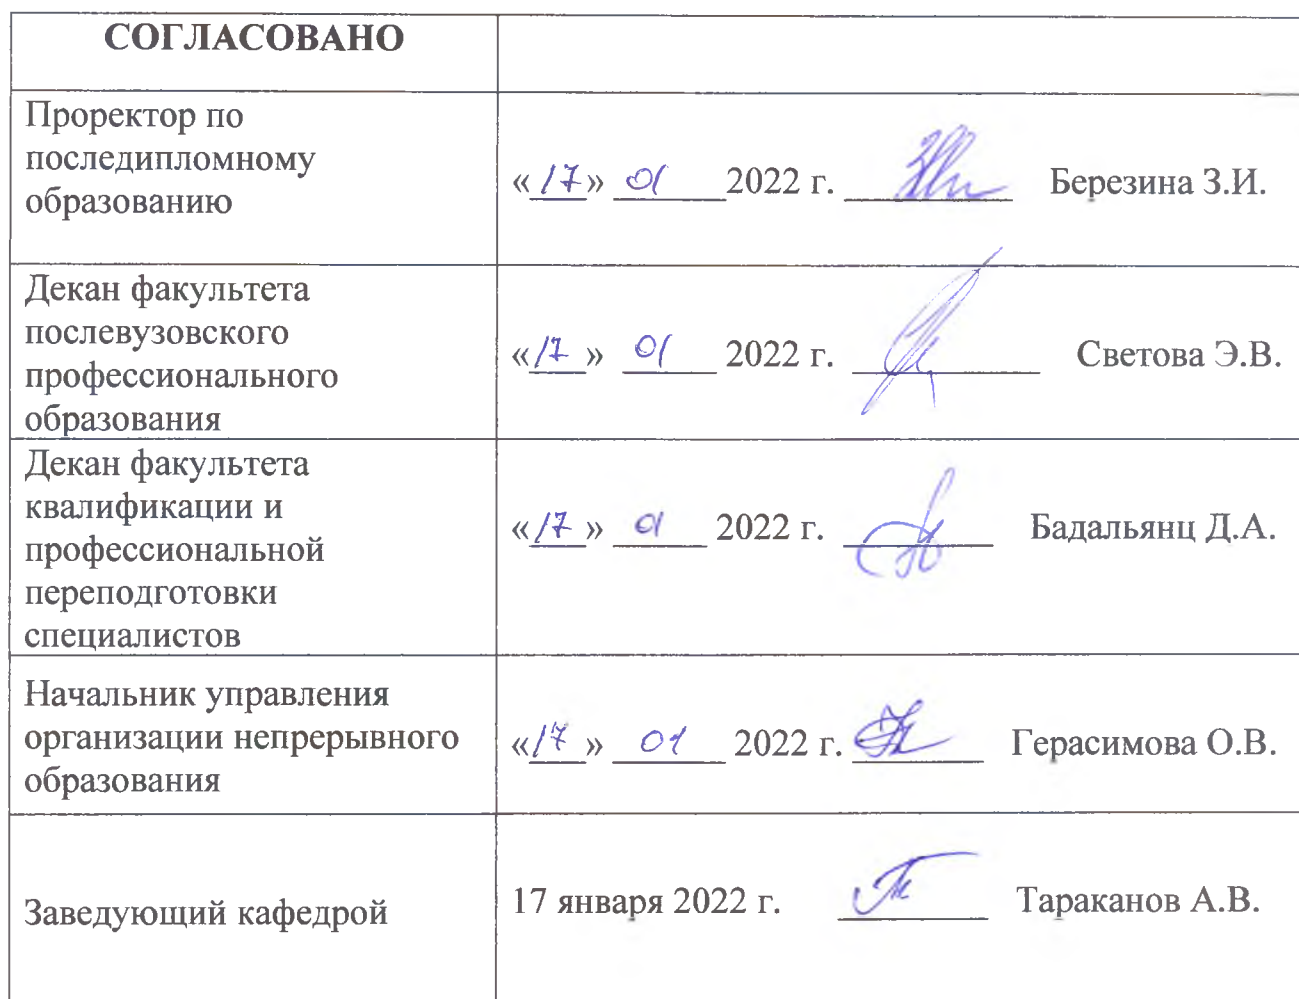 СОГЛАСОВАНО
Проректор по
последипломному
образованию
«17» 01 2022 г. Березина З.И.
Декан факультета
послевузовского
профессионального
образования
«17» 01 2022 г. Светова Э.В.
Декан факультета
квалификации и
профессиональной
переподготовки
специалистов
«17» 01 2022 г. Бадальянц Д.А.
Начальник управления
организации непрерывного
образования
«17» 01 2022 г. Герасимова О.В.
Заведующий кафедрой
17 января 2022 г. Тараканов А.В.